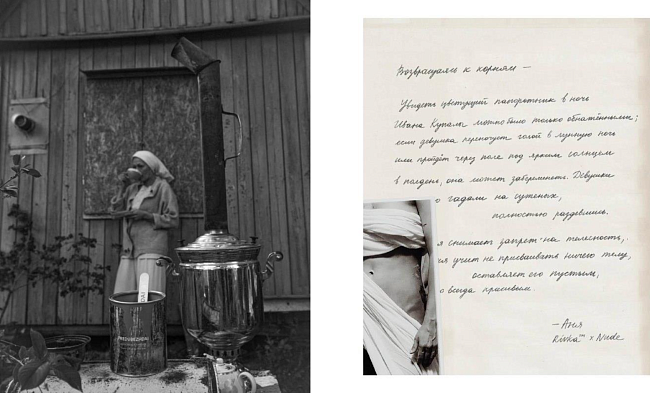 Возвращаясь к корням —
Увидеть цветущий папоротник в ночь
Ивана Купалы можно было только обнажёнными;
если девушка переночует голой в лунную ночь
или пройдёт через поле под ярким солнцем
в полдень, она может забеременеть. Девушки
о гадали на суженых,
полностью раздевшись.
я снимает запрет на телесность,
ия учит не присваивать ничего телу,
оставляет его пустым,
о всегда красивым.
— Аня
Rivka™ x Nude